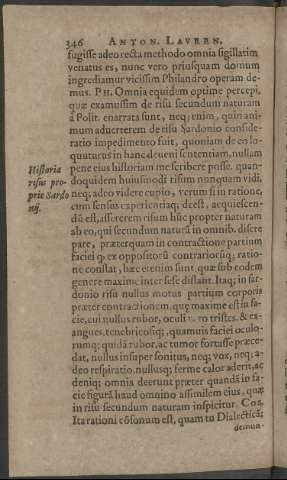 346 ANTON. LAVREN.
fugisse adeo recta methodo omnia sigillatim
venatus es, nunc vero priusquam domum
ingrediamur vicissim Philandro operam de-
mus. PH. Omnia equidem optime percepi,
quæ examussim de risu secundum naturam
à Polit. enarrata sunt, neq; enim, quin ani-
mum aduerterem de risu Sardonio conside-
ratio impedimento fuit, quoniam de eo lo-
quuturus in hanc deueni sententiam, nullam
pene eius historiam me scribere posse. quan-
doquidem huiusmodi risum nunquam vidi,
neq; adeo videre cupio, verum si in ratione,
cum sensus experientiaq; deest, acquiescen-
dū est, assererem risum hūc propter naturam
ab eo, qui secundum naturā in omnib. discre
pare, præterquam in contractione partium
faciei q; ex oppositorū contrariorūq; ratio-
ne constat, hæc etenim sunt quæ sub eodem
genere maxime inter sese distant. Itaq; in sar-
donio risu nullus motus partium corporis
præter contractionem, quę maxime est in fa-
cie, cui nullus rubor, oculi vero tristes. & ex-
angues, tenebricosiq;, quamuis faciei oculo-
rumq; quidā rubor, ac tumor fortasse præce-
dat, nullus insuper sonitus, neq; vox, neq; a-
deo respiratio. nullusq; ferme calor aderit, ac
deniq; omnia deerunt præter quandā in fa-
cie figurā haud omnino assimilem eius, quæ
in risu secundum naturam inspicitur. COS.
Ita rationi cōsonum est, quam tu Dialecticā;
demon-
Historia
risus pro-
prie Sardo
nij.